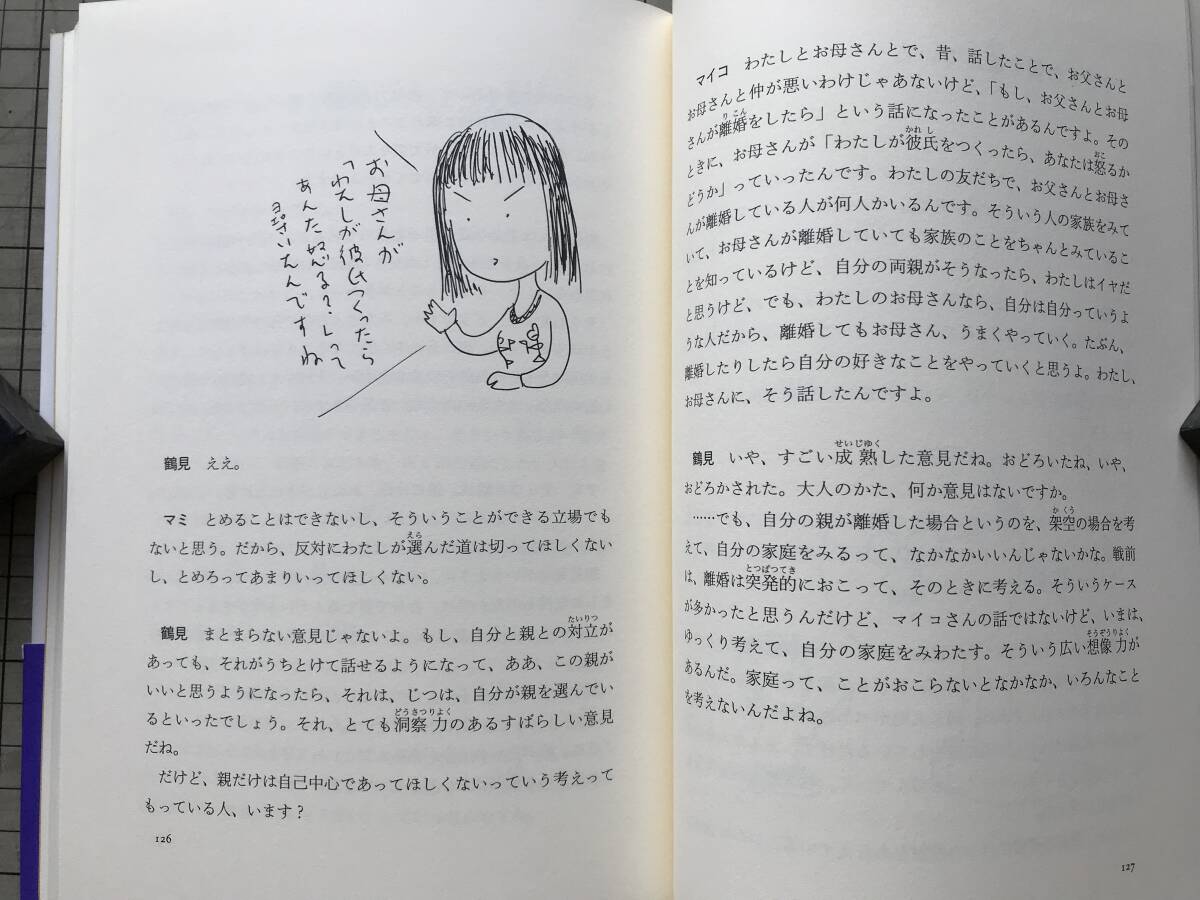 お母さんが
「わたしが彼氏つくったら
あんた怒る?」って
いたんですね
鶴見 ええ。
マミ とめることはできないし、そういうことができる立場でも
ないと思う。だから、反対にわたしが選んだ道は切ってほしくない
し、とめろってあまりいってほしくない。
鶴見 まとまらない意見じゃないよ。もし、自分と親との対立が
あっても、それがうちとけて話せるようになって、ああ、この親が
いいと思うようになったら、それは、じつは、自分が親を選んでい
るといったでしょう。それ、とても洞察力のあるすばらしい意見
だね。
だけど、親だけは自己中心であってほしくないっていう考えって
もっている人、います?
126
マイコ わたしとお母さんとで、昔、話したことで、お父さんと
お母さんと仲が悪いわけじゃあないけど、「もし、お父さんとお母
さんが離婚をしたら」という話になったことがあるんですよ。その
ときに、お母さんが「わたしが彼氏をつくったら、あなたは怒るか
どうか」っていったんです。わたしの友だちで、お父さんとお母さ
んが離婚している人が何人かいるんです。そういう人の家族をみて
いて、お母さんが離婚していても家族のことをちゃんとみているこ
とを知っているけど、自分の両親がそうなったら、わたしはイヤだ
と思うけど、でも、わたしのお母さんなら、自分は自分っていうよ
うな人だから、離婚してもお母さん、うまくやっていく。たぶん、
離婚したりしたら自分の好きなことをやっていくと思うよ。わたし、
お母さんに、そう話したんですよ。
鶴見 いや、すごい成熟した意見だね。おどろいたね、いや、
おどろかされた。大人のかた、何か意見はないですか。
……でも、自分の親が離婚した場合というのを、架空の場合を考
えて、自分の家庭をみるって、なかなかいいんじゃないかな。戦前
は、離婚は突発的におこって、そのときに考える。そういうケース
が多かったと思うんだけど、マイコさんの話ではないけど、いまは、
ゆっくり考えて、自分の家庭をみわたす。そういう広い想像力が
あるんだ。家庭って、ことがおこらないとなかなか、いろんなこと
を考えないんだよね。
127